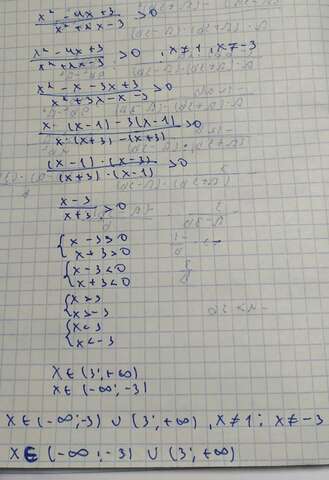 x² - 4x + 3 / x² + 2x - 3 > 0
x² - 4x + 3 / x² + 2x - 3 > 0 , x ≠ 1 , x ≠ -3
x² - x - 3x + 3 / x² + 3x - x - 3 > 0
x · (x-1) - 3(x-1) / x · (x+3) - (x+3) > 0
(x-1) · (x-3) / (x+3) · (x-1) > 0
x - 3 / x + 3 > 0
{ x - 3 > 0
x + 3 > 0
{ x - 3 < 0
x + 3 < 0
{ x > 3
x > -3
{ x < 3
x < -3
x ∈ (3; +∞)
x ∈ (-∞; -3)
x ∈ (-∞; -3) ∪ (3; +∞) , x ≠ 1 ; x ≠ -3
x ∈ (-∞; -3) ∪ (3; +∞)